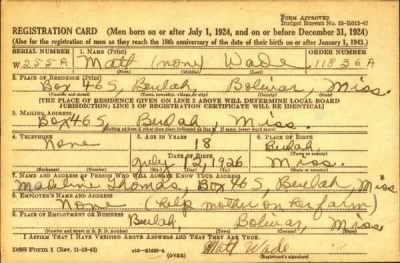 FORM APPROVED
Budget Bureau No. 33-R012-43
REGISTRATION CARD (Men born on or after July 1, 1924, and on or before December 31, 1924)
(Also for the registration of men as they reach the 18th anniversary of the date of their birth on or after January 1, 1943.)
SERIAL NUMBER 1. NAME (Print) ORDER NUMBER
W 255 A Matt (none) Wade 11836A
(First) (Middle) (Last)
2. PLACE OF RESIDENCE (Print)
Box 465, Beulah, Bolivar, Miss.
(Number and street) (Town, township, village, or city) (County) (State)
(THE PLACE OF RESIDENCE GIVEN ON LINE 2 ABOVE WILL DETERMINE LOCAL BOARD
JURISDICTION; LINE 2 OF REGISTRATION CERTIFICATE WILL BE IDENTICAL)
3. MAILING ADDRESS
Box 465, Beulah Miss
(Mailing address if other than place indicated on line 2. If same, insert word same)
4. TELEPHONE 5. AGE IN YEARS 6. PLACE OF BIRTH
None 18 Beulah
DATE OF BIRTH (Town or county)
July 1926 Miss.
(Exchange) (Number) (Mo.) (Day) (Yr.) (State or country)
7. NAME AND ADDRESS OF PERSON WHO WILL ALWAYS KNOW YOUR ADDRESS
Madeline Thomas, Box 465, Beulah, Miss
8. EMPLOYER'S NAME AND ADDRESS
None (help mother on her farm)
9. PLACE OF EMPLOYMENT OR BUSINESS
Beulah, Bolivar, Miss
(Number and street or R. F. D. number) (Town) (County) (State)
I AFFIRM THAT I HAVE VERIFIED ABOVE ANSWERS AND THAT THEY ARE TRUE.
DSS Form 1 (Rev. 11-16-42) (OVER) Matt Wade